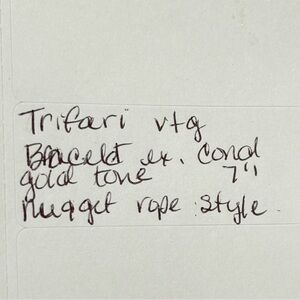 Trifari vtg
Bracelt ex. cond
gold tone 7"
nugget rope style.